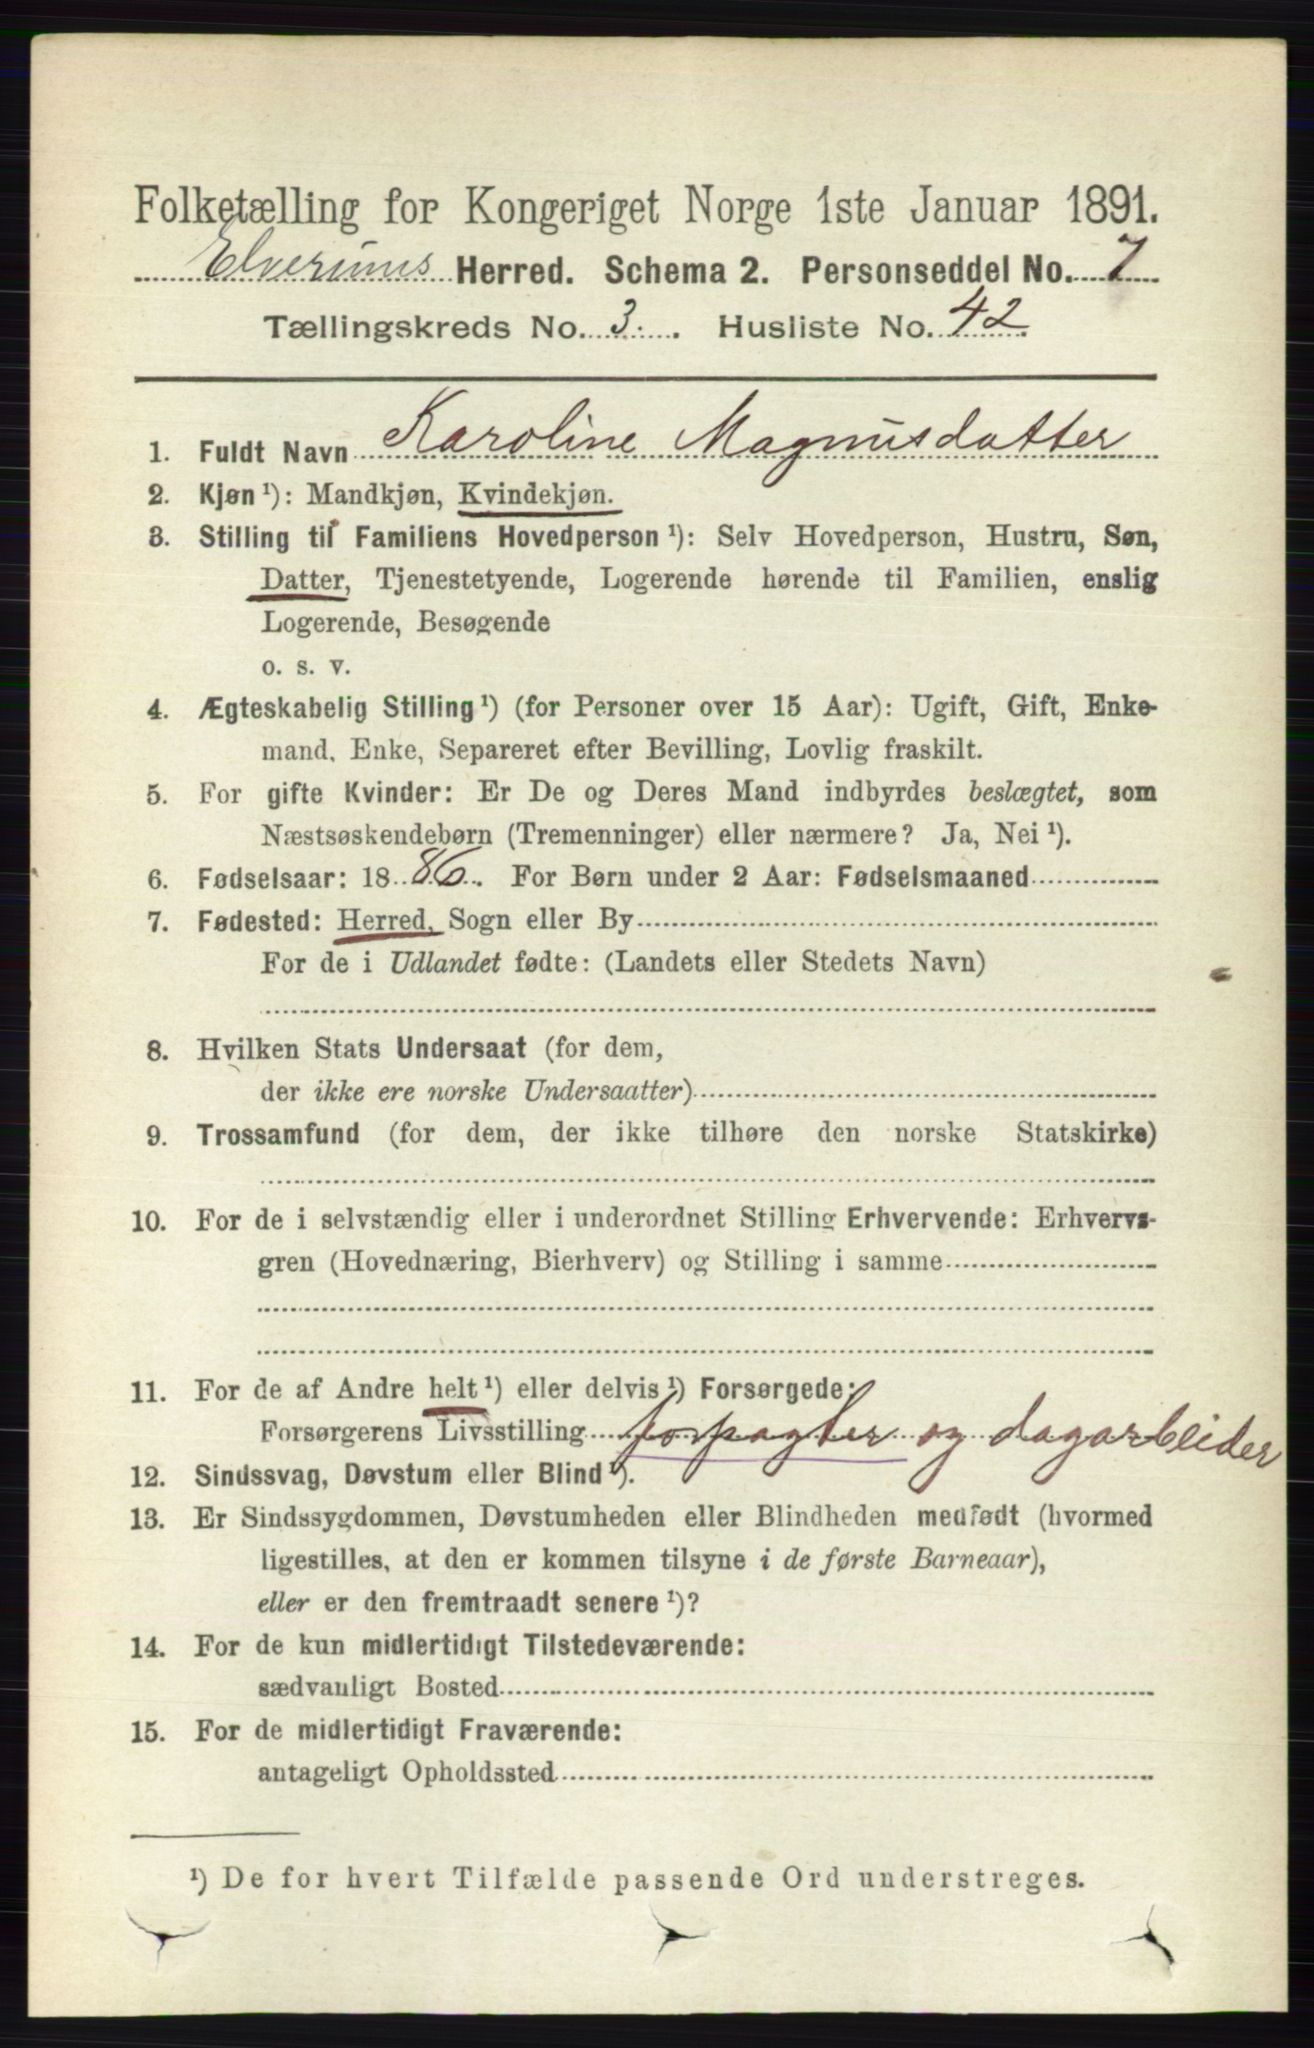 Folketælling for Kongeriget Norge 1ste Januar 1891.
Elverums Herred. Schema 2. Personseddel No. 7
Tællingskreds No. 3. Husliste No. 42.
1. Fuldt Navn Karoline Magnusdatter
2. Kjøn ¹): Mandkjøn, Kvindekjøn.
3. Stilling til Familiens Hovedperson ¹): Selv Hovedperson, Hustru, Søn,
Datter, Tjenestetyende, Logerende hørende til Familien, enslig
Logerende, Besøgende
o. s. v.
4. Ægteskabelig Stilling ¹) (for Personer over 15 Aar): Ugift, Gift, Enke-
mand, Enke, Separeret efter Bevilling, Lovlig fraskilt.
5. For gifte Kvinder: Er De og Deres Mand indbyrdes beslægtet, som
Næstsøskendebørn (Tremenninger) eller nærmere? Ja, Nei ¹).
6. Fødselsaar: 1886. For Børn under 2 Aar: Fødselsmaaned
7. Fødested: Herred, Sogn eller By
For de i Udlandet fødte: (Landets eller Stedets Navn)
8. Hvilken Stats Undersaat (for dem,
der ikke ere norske Undersaatter)
9. Trossamfund (for dem, der ikke tilhøre den norske Statskirke)
10. For de i selvstændig eller i underordnet Stilling Erhvervende: Erhvervs-
gren (Hovednæring, Bierhverv) og Stilling i samme
11. For de af Andre helt ¹) eller delvis ¹) Forsørgede:
Forsørgerens Livsstilling forpagter og dagarbeider
12. Sindssvag, Døvstum eller Blind ¹).
13. Er Sindssygdommen, Døvstumheden eller Blindheden medfødt (hvormed
ligestilles, at den er kommen tilsyne i de første Barneaar),
eller er den fremtraadt senere ¹)?
14. For de kun midlertidigt Tilstedeværende:
sædvanligt Bosted
15. For de midlertidigt Fraværende:
antageligt Opholdssted
¹) De for hvert Tilfælde passende Ord understreges.